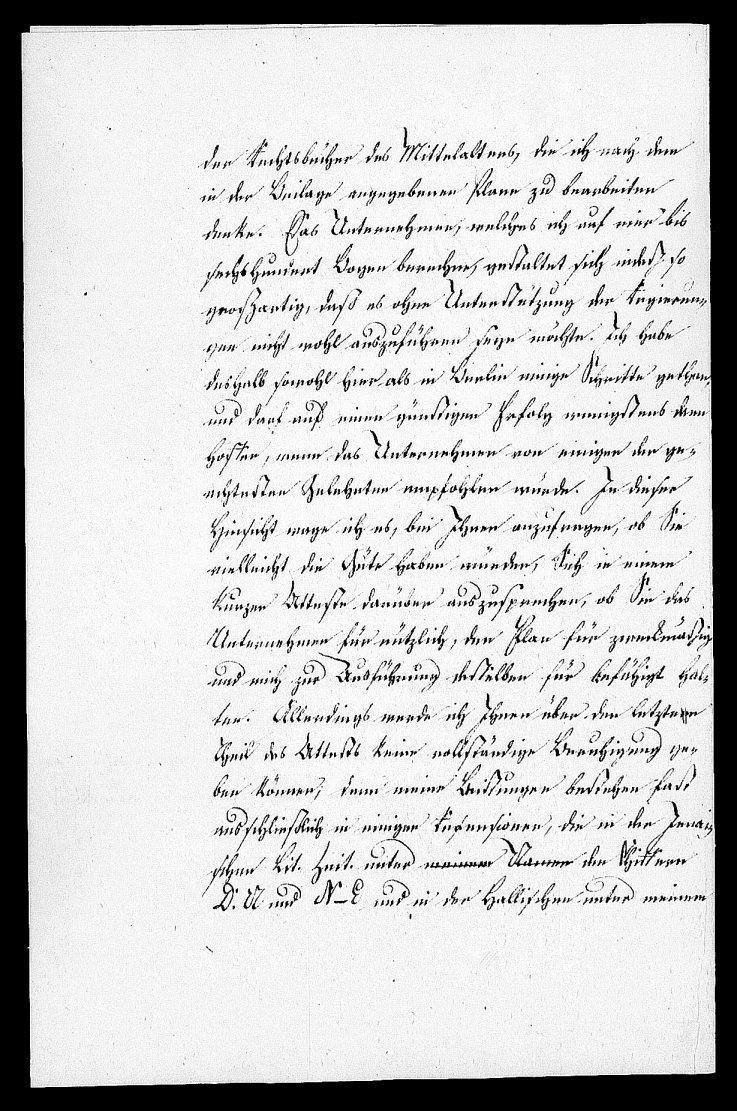 der Rechtsbücher des Mittelalters, die ich nach dem
in der Beilage angegebenen Plane zu bearbeiten
denke. Das Unternehmen, welches ich auf vier bis
sechshundert Bogen berechne, gestaltet sich indeß so
großartig, daß es ohne Unterstützung der Regierun-
gen nicht wohl auszuführen seyn möchte. Ich habe
deshalb sowohl hier als in Berlin einige Schritte gethan,
und darf auf einen günstigen Erfolg wenigstens dann
hoffen, wenn das Unternehmen von einigen der ge-
achtesten Gelehrten empfohlen würde. In dieser
Hinsicht wage ich es, bei Ihnen anzufragen, ob Sie
vielleicht die Güte haben würden, Sich in einem
kurzen Atteste darüber auszusprechen, ob Sie das
Unternehmen für nützlich, den Plan für zweckmäßig
und mich zur Ausführung desselben für befähigt hal-
ten. Allerdings werde ich Ihnen über den letzteren
Theil des Attests keine vollständige Beruhigung ge-
ben können, denn meine Leistungen bestehen fast
ausschließlich in einigen Recensionen, die in der Jenai-
schen Lit. Zeit. unter meinem Namen den Chiffern
D. A und N-E und in der Hallischen unter meinem